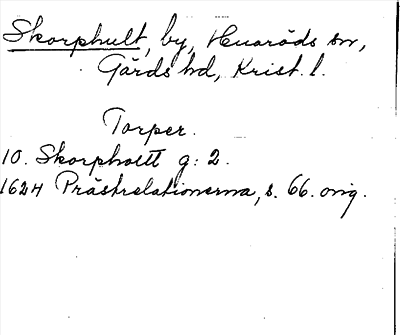 Skorphult, by, Huaröds sn,
Gärds hd, Krist. l.
Torper.
10. Skorphoett g: 2.
1624 Prästrelationerna, s. 66. orig.